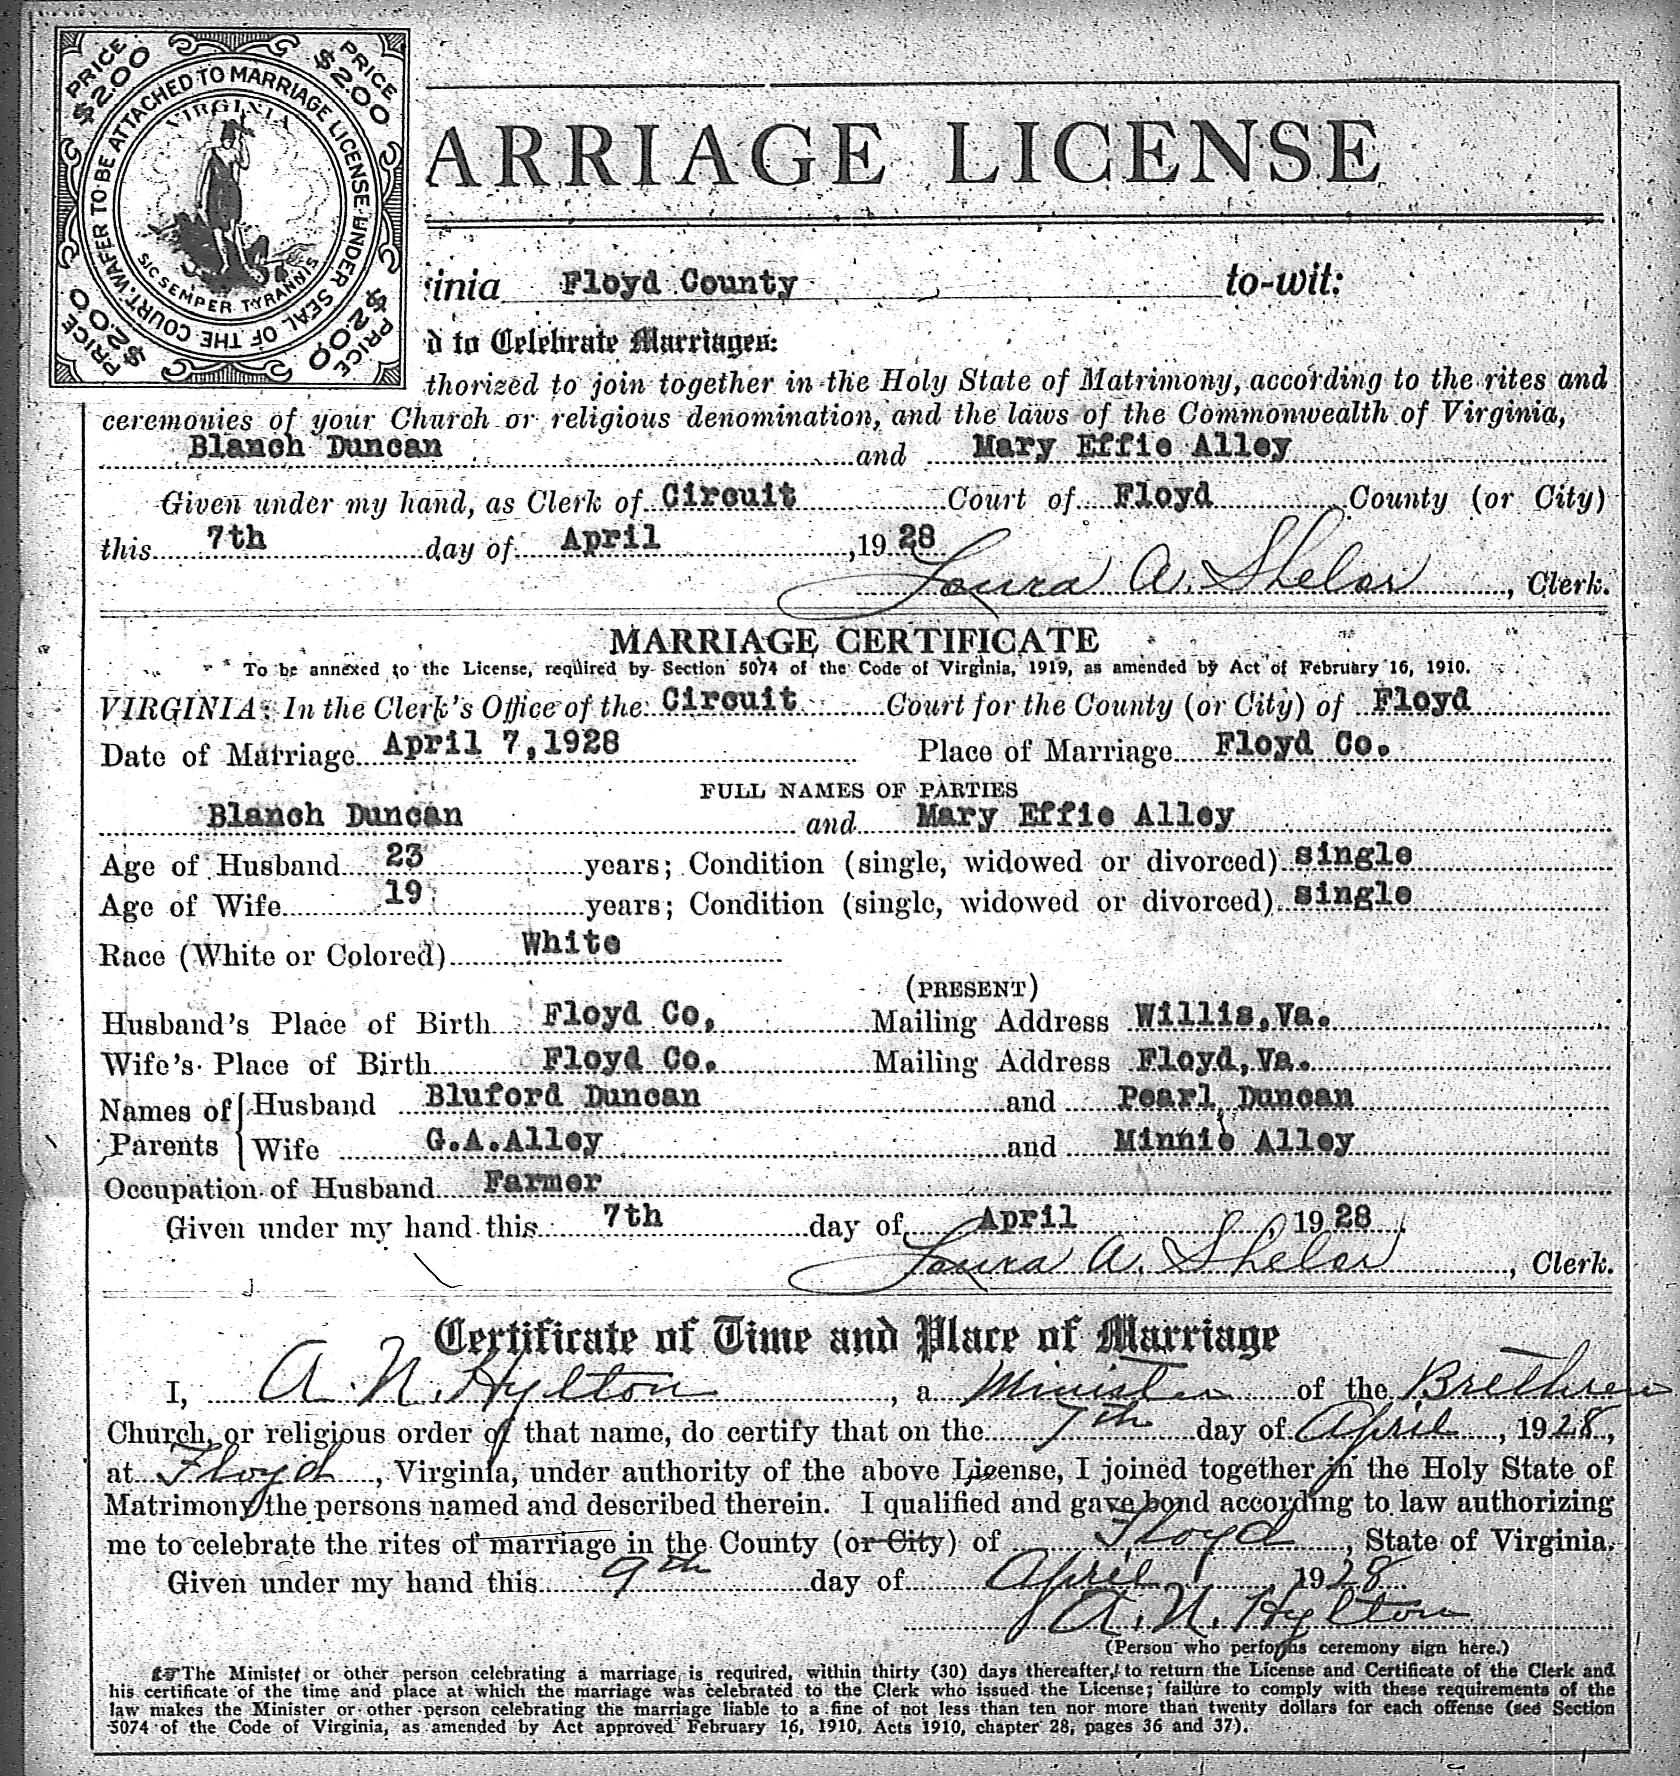 PRICE $2.00 PRICE $2.00
WAFER TO BE ATTACHED TO MARRIAGE LICENSE UNDER SEAL OF THE COURT.
VIRGINIA
SIC SEMPER TYRANNIS
PRICE $2.00 PRICE $2.00
ARRIAGE LICENSE
inia Floyd County to-wit:
d to Celebrate Marriages:
thorized to join together in the Holy State of Matrimony, according to the rites and
ceremonies of your Church or religious denomination, and the laws of the Commonwealth of Virginia,
Blanch Duncan and Mary Effie Alley
Given under my hand, as Clerk of Circuit Court of Floyd County (or City)
this 7th day of April, 1928
Laura A. Shelor, Clerk.
MARRIAGE CERTIFICATE
To be annexed to the License, required by Section 5074 of the Code of Virginia, 1919, as amended by Act of February 16, 1910.
VIRGINIA: In the Clerk's Office of the Circuit Court for the County (or City) of Floyd
Date of Marriage April 7, 1928 Place of Marriage Floyd Co.
FULL NAMES OF PARTIES
Blanch Duncan and Mary Effie Alley
Age of Husband 23 years; Condition (single, widowed or divorced) single
Age of Wife 19 years; Condition (single, widowed or divorced) single
Race (White or Colored) White
(PRESENT)
Husband's Place of Birth Floyd Co, Mailing Address Willis, Va.
Wife's Place of Birth Floyd Co. Mailing Address Floyd, Va.
Names of Parents { Husband Bluford Duncan and Pearl Duncan
Wife G.A.Alley and Minnie Alley
Occupation of Husband Farmer
Given under my hand this 7th day of April, 1928
Laura A. Shelor, Clerk.
Certificate of Time and Place of Marriage
I, A. N. Hylton, a Minister of the Brethren
Church, or religious order of that name, do certify that on the 7th day of April, 1928,
at Floyd, Virginia, under authority of the above License, I joined together in the Holy State of
Matrimony the persons named and described therein. I qualified and gave bond according to law authorizing
me to celebrate the rites of marriage in the County (or City) of Floyd, State of Virginia.
Given under my hand this 9th day of April 1928
A. N. Hylton
(Person who performs ceremony sign here.)
☞The Minister or other person celebrating a marriage is required, within thirty (30) days thereafter, to return the License and Certificate of the Clerk and
his certificate of the time and place at which the marriage was celebrated to the Clerk who issued the License; failure to comply with these requirements of the
law makes the Minister or other person celebrating the marriage liable to a fine of not less than ten nor more than twenty dollars for each offense (see Section
5074 of the Code of Virginia, as amended by Act approved February 16, 1910, Acts 1910, chapter 28, pages 36 and 37).